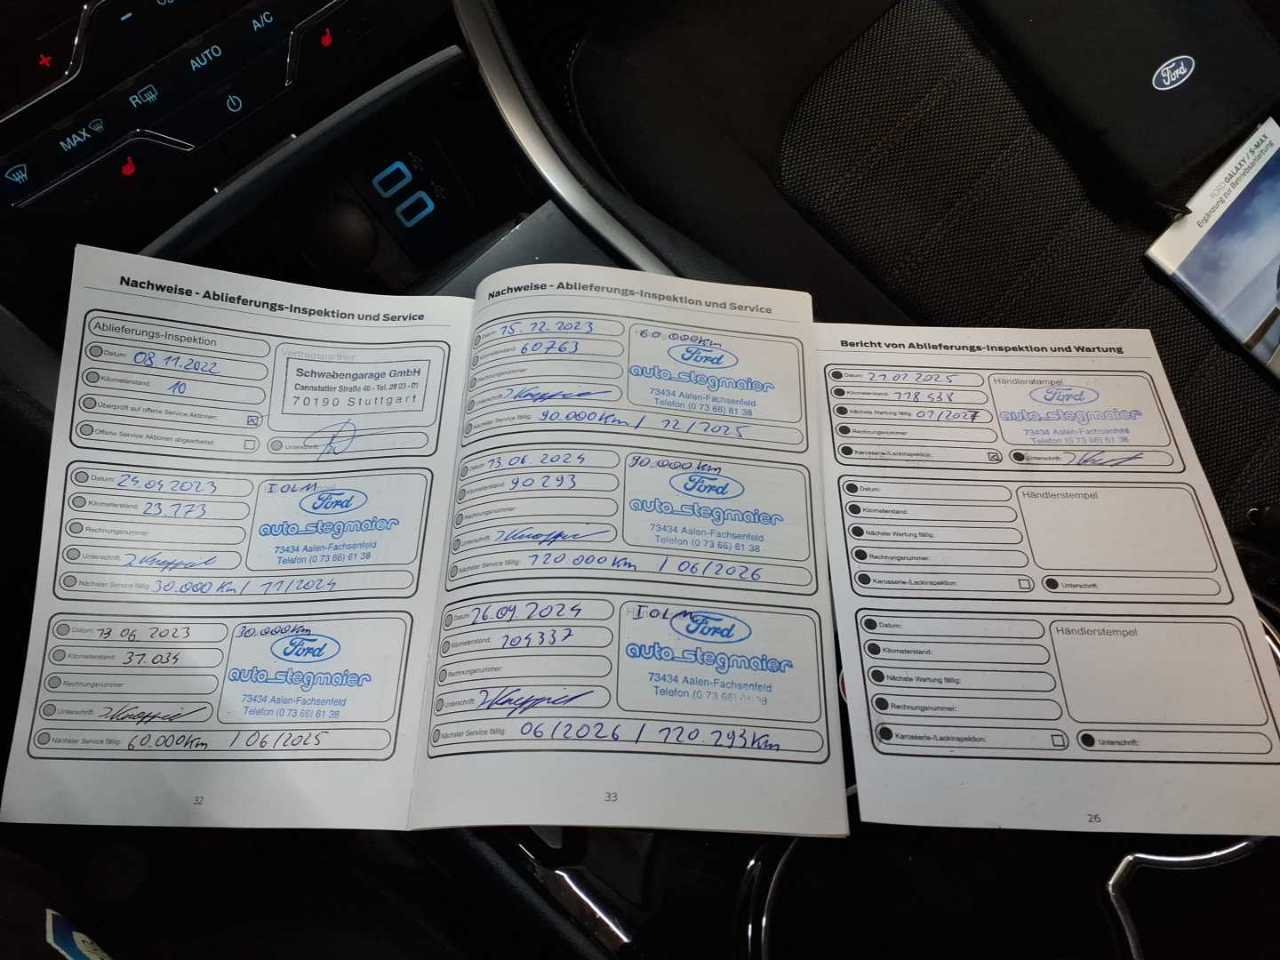 A/C
AUTO
R
MAX
Ford
FORD GALAXY / S-MAX
Ergänzung zur Betriebsanleitung
Nachweise - Ablieferungs-Inspektion und Service
Ablieferungs-Inspektion
Datum: 08.11.2022
Kilometerstand: 10
Überprüft auf offene Service Aktionen:
Offene Service Aktionen abgearbeitet:
Vertragspartner
Schwabengarage GmbH
Cannstatter Straße 46 - Tel. 28 03 - 01
70190 Stuttgart
Unterschrift:
Datum: 24.04.2023
Kilometerstand: 23.773
Rechnungsnummer:
Unterschrift:
Nächster Service fällig: 30.000 Km / 11/2024
I OLM
Ford
auto stegmaier
73434 Aalen-Fachsenfeld
Telefon (0 73 66) 61 38
Datum: 13 06 2023
Kilometerstand: 31.034
Rechnungsnummer:
Unterschrift:
Nächster Service fällig: 60.000Km / 06/2025
30.000Km
Ford
auto stegmaier
73434 Aalen-Fachsenfeld
Telefon (0 73 66) 61 38
32
Nachweise - Ablieferungs-Inspektion und Service
Datum: 15.12.2023
Kilometerstand: 60763
Rechnungsnummer:
Unterschrift:
Nächster Service fällig: 90.000Km / 12/2025
60.000Km
Ford
auto stegmaier
73434 Aalen-Fachsenfeld
Telefon (0 73 66) 61 38
Datum: 13 06. 2024
Kilometerstand: 90293
Rechnungsnummer:
Unterschrift:
Nächster Service fällig: 120 000Km / 06/2026
90.000Km
Ford
auto stegmaier
73434 Aalen-Fachsenfeld
Telefon (0 73 66) 61 38
Datum: 26.09.2024
Kilometerstand: 104337
Rechnungsnummer:
Unterschrift:
Nächster Service fällig: 06/2026 / 120.293Km
I OLM
Ford
auto stegmaier
73434 Aalen-Fachsenfeld
Telefon (0 73 66)
33
Bericht von Ablieferungs-Inspektion und Wartung
Datum: 21.02.2025
Kilometerstand: 118538
Nächste Wartung fällig: 02/2027
Rechnungsnummer:
Karosserie-/Lackinspektion:
Händlerstempel
Ford
auto stegmaier
73434 Aalen-Fachsenfeld
Telefon (0 73 66) 61 38
Unterschrift:
Datum:
Kilometerstand:
Nächste Wartung fällig:
Rechnungsnummer:
Karosserie-/Lackinspektion:
Händlerstempel
Unterschrift:
Datum:
Kilometerstand:
Nächste Wartung fällig:
Rechnungsnummer:
Karosserie-/Lackinspektion:
Händlerstempel
Unterschrift:
26